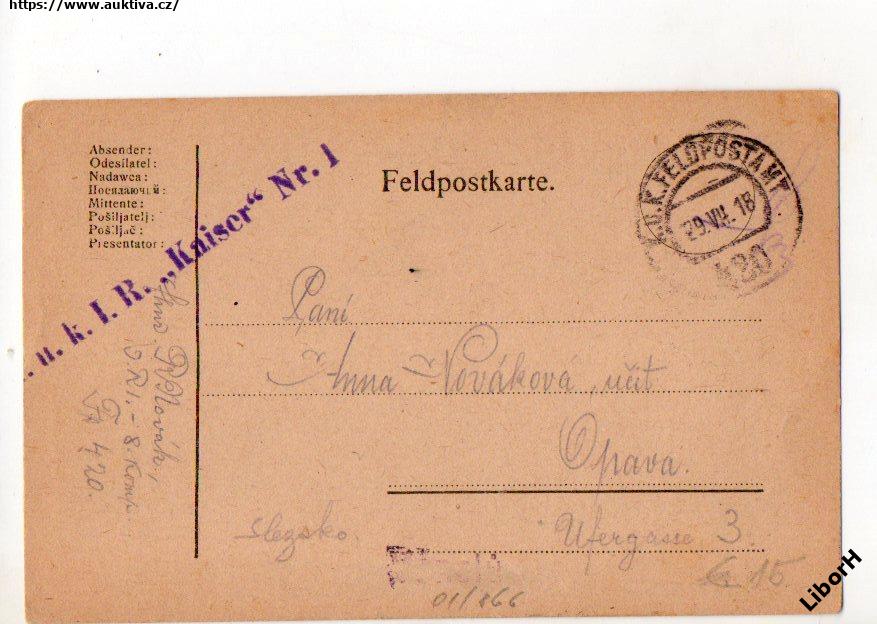 https://www.auktiva.cz/
Absender:
Odesílatel:
Nadawca:
Посилаючий:
Mittente:
Pošiljatelj:
Pošiljač:
Presentator:
u. k. I. R. „Kaiser“ Nr. 1
Feldpostkarte.
K.U.K. FELDPOSTAMT
29.VII.18
420
Paní
Anna Nováková, učit
Opava.
Slezsko.
Ufergasse 3.
Novák,
IR 1. - 8. Komp.
FP 420.
01/866
15
LiborH